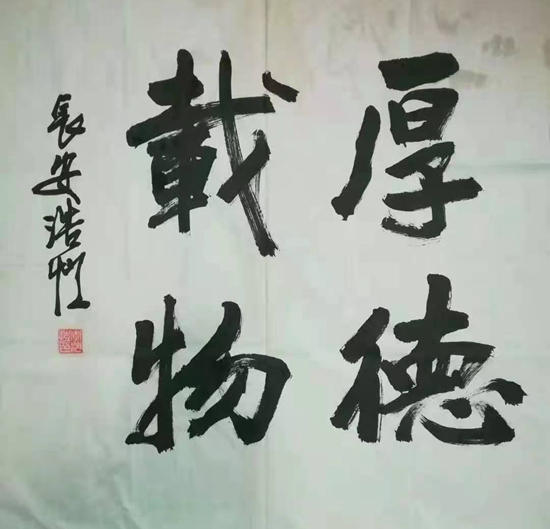 厚德
載物
長安浩恺